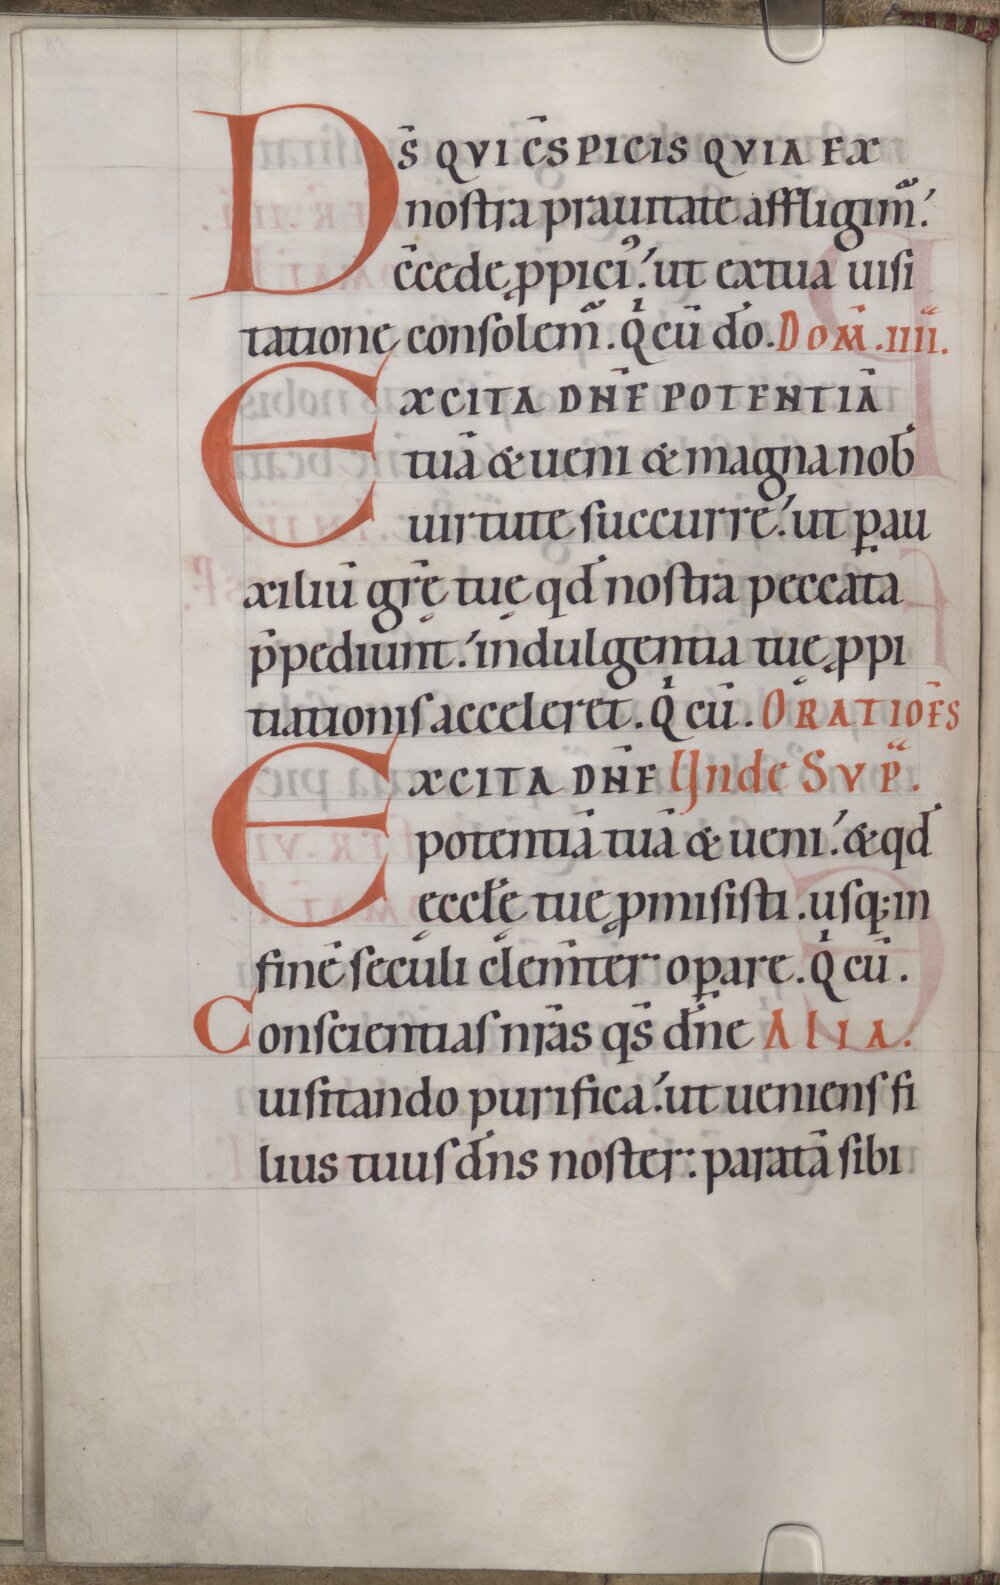 DS̄ QVI C̄SPICIS QVIA EX
nostra prauitate affligim᷒.ʼ
c̄cede ꝓpiciꝰ.ʼ ut ex tua uisi
tatione consolem᷒. Q̇ cū dō. Dom̄. IIII.
EXCITA DN̄E POTENTIĀ
tuā & ueni & magna nob̄
uirtute succurre.ʼ ut ꝑ au
xiliū gr̄ę tuę qd̄ nostra peccata
p̄pediunt.ʼ indulgentia tuę ꝓpi
tiationis acceleret. Q̇ cū. ORATIOES̄
EXCITA DN̄E Ynde SVP̄.
potentiā tuā & ueni.ʼ & qd̄
ęccl̄ę tuę ꝓmisisti. usq; in
finē seculi clem̄ter oꝑare. Q̇ cū.
Conscientias nr̄as qs̄ dn̄e ALIA.
uisitando purifica.ʼ ut ueniens fi
lius tuus dn̄s noster: paratā sibi